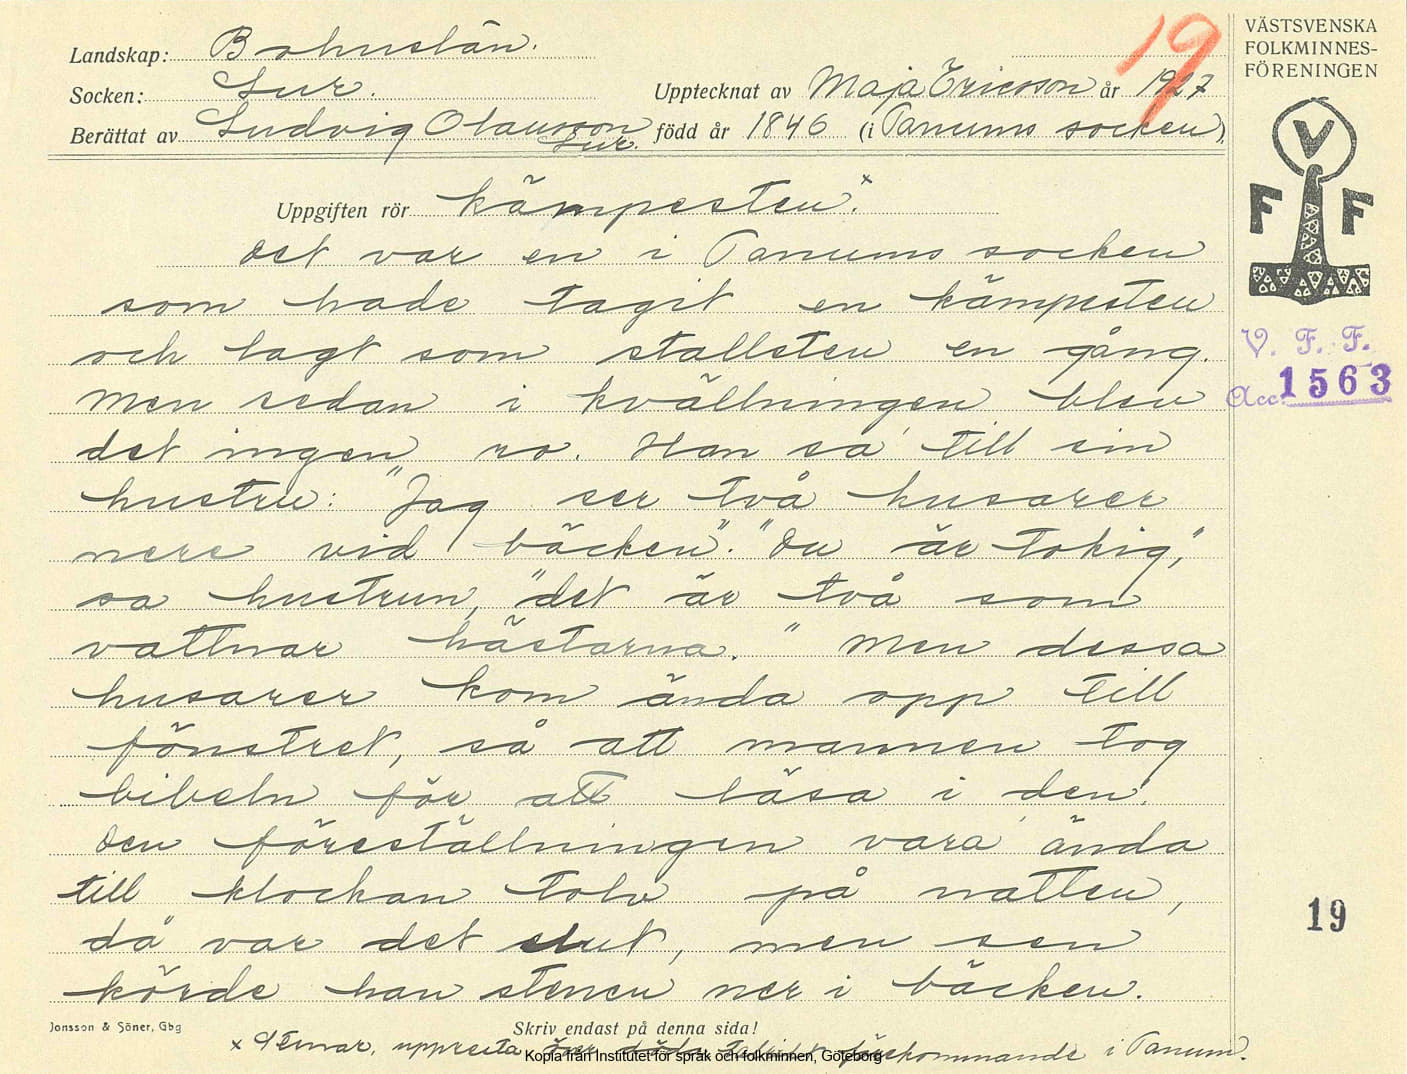 Landskap: Bohuslän.
Socken: Lur.
Upptecknat av Maja Ericsson år 1927
Berättat av Ludvig Olausson Lur. född år 1846 (i Tanums socken).
19
VÄSTSVENSKA
FOLKMINNES-
FÖRENINGEN
V
F F
V. F. F.
Acc. 1563
Uppgiften rör kämpesten.x
Det var en i Tanums socken
som hade tagit en kämpesten
och lagt som stallsten en gång.
Men sedan i kvällningen blev
det ingen ro. Han sa till sin
hustru: "Jag ser två husarer
nere vid bäcken". "Du är tokig,"
sa hustrun, "det är två som
vattnar hästarna." Men dessa
husarer kom ända opp till
fönstret, så att mannen tog
bibeln för att läsa i den.
Den föreställningen vara' ända
till klockan tolv på natten,
då var det slut, men sen
körde han stenen ner i bäcken.
19
Jonsson & Söner, Gbg
Skriv endast på denna sida!
x Stenar, uppresta över döda förekommande i Tanum.
Kopia från Institutet för språk och folkminnen, Göteborg